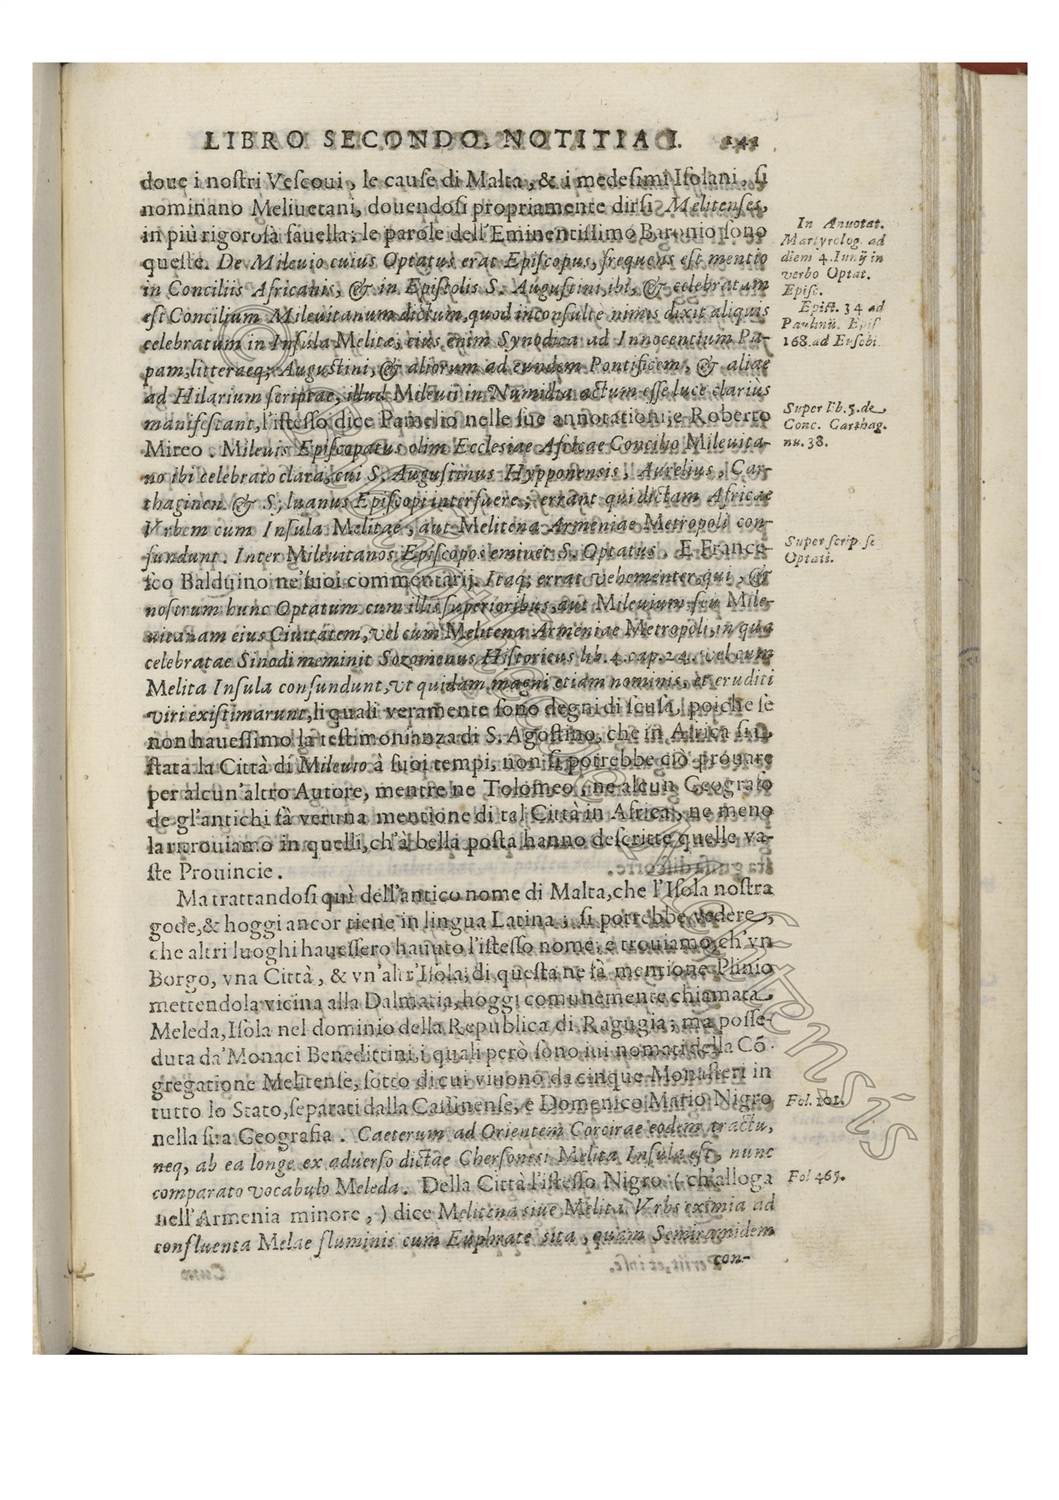 LIBRO SECONDO, NOTITIA I. 141
doue i nostri Vescoui, le cause di Malta, & i medesimi Isolani, si
nominano Meliuetani, douendosi propriamente dirsi Melitenses,
in più rigorosa fauella; le parole dell'Eminentissimo Baronio sono
queste. De Mileuio cuius Optatus erat Episcopus, frequens est mentio
in Conciliis Africanis, & in Epistolis S. Augustini, ibi, & celebratum
est Concilium Mileuitanum dictum, quod inconsulte nimis dixit aliquis
celebratum in Insula Melitæ; eius enim Synodica ad Innocentium Pa-
pam, litteraeq; Augustini, & aliorum ad eundem Pontificem, & aliae
ad Hilarium scriptae, illud Mileuii in Numidia actum esse luce clarius
manifestant, l'istesso dice Pamelio nelle sue annotationi; e Roberto
Mireo. Mileuis Episcopatus olim Ecclesiae Africae Concilio Mileuita-
no ibi celebrato clara, cui S. Augustinus Hypponensis, Aurelius, Car-
thaginen & Siluanus Episcopi interfuere; errant qui dictam Africae
Vrbem cum Insula Melitae, aut Melitena Armeniae Metropoli con-
fundunt. Inter Mileuitanos Episcopos eminet S. Optatus. E France-
sco Balduino ne' suoi commentarij. Itaq; errat vehementer qui, &
nostrum hunc Optatum cum illis superioribus, aut Mileuium seu Mile-
uitanam eius Ciuitatem, vel cum Melitena Armeniae Metropoli, in qua
celebratae Sinodi meminit Sozomenus Historicus lib. 4. cap. 24. vel cum
Melita Insula confundunt, vt quidam magni etiam nominis, et eruditi
viri existimarunt, li quali veramente sono degni di scusa, poiche se
non hauessimo la testimonianza di S. Agostino, che in Africa si in
stata la Città di Mileuio à suoi tempi, non si potrebbe ciò prouare
per alcun'altro Autore, mentre ne Tolomeo, ne alcun Geografo
de gl'antichi fà veruna mentione di tal Città in Africa, ne meno
la ritrouiamo in quelli, ch'à bella posta hanno descritte quelle va-
ste Prouincie.
Ma trattandosi quì dell'antico nome di Malta, che l'Isola nostra
gode, & hoggi ancor tiene in lingua Latina, si potrebbe vedere,
che altri luoghi hauessero hauuto l'istesso nome, e trouiamo, ch'vn
Borgo, vna Città, & vn'altr'Isola; di questa ne fà mentione Plinio
mettendola vicina alla Dalmatia, hoggi comunemente chiamata
Meleda, Isola nel dominio della Republica di Ragugia; ma posse-
duta da' Monaci Benedittini, i quali però sono iui nomati della Cõ-
gregatione Melitense, sotto di cui viuono da cinque Monasteri in
tutto lo Stato, separati dalla Casinense, e Domenico Mario Nigro
nella sua Geografia. Caeterum ad Orientem Corcirae eodem tractu,
neq, ab ea longe ex aduerso dictae Chersonesi Melita Insula est, nunc
comparato vocabulo Meleda. Della Città l'istesso Nigro (ch'alloga
nell'Armenia minore,) dice Melitena siue Melita Vrbs eximia ad
confluenta Melae fluminis cum Euphrate sita, quam Semiramidem
con-
In Annotat.
Martyrolog. ad
diem 4. Iunij in
verbo Optat.
Episc.
Epist. 34 ad
Paulinũ. Epis
168. ad Eusebi
Super lib. 5. de
Conc. Carthag.
nu. 38.
Super scrip. se
Optati.
Fol. 101.
Fol 465.